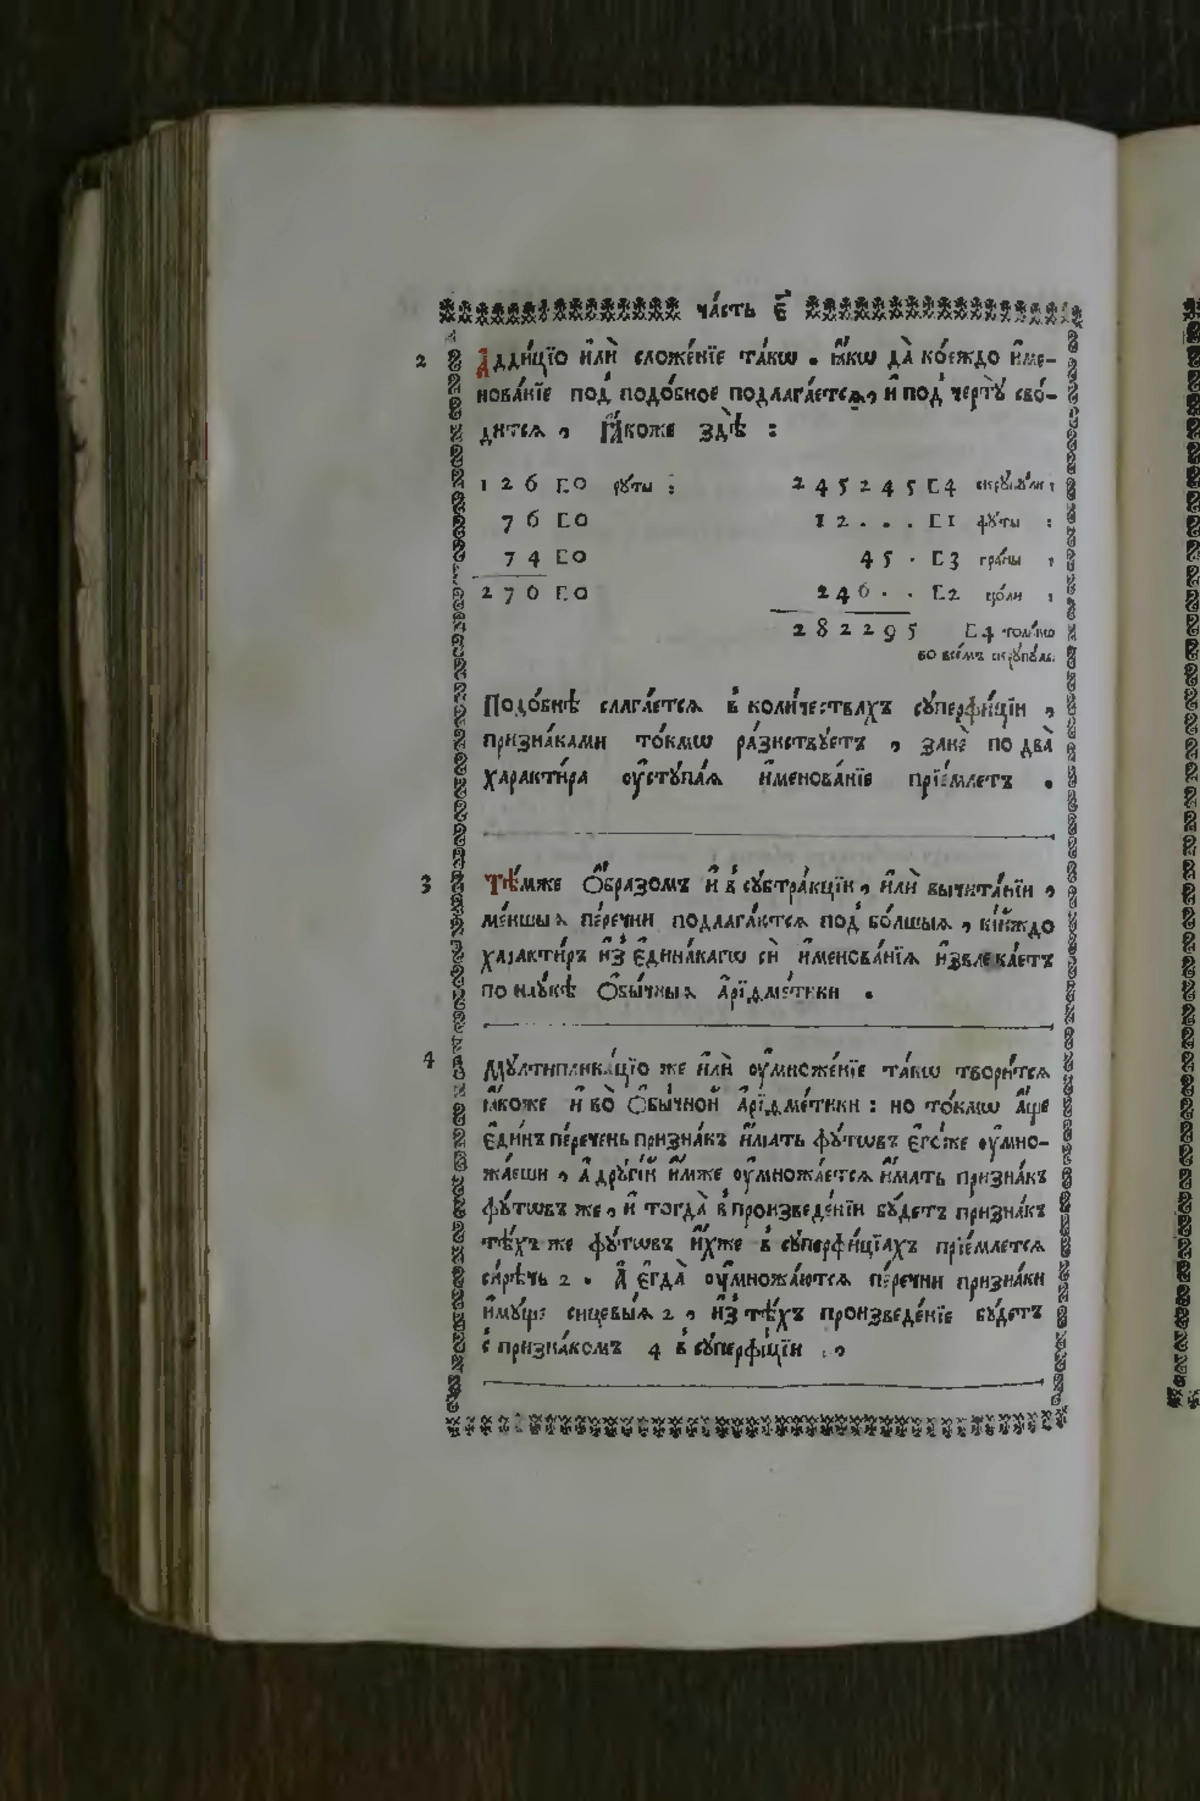 ча́сть е҃
2 Аддїцїо и҆лѝ сложе́нїе та́кѡ . ꙗ҆́кѡ да̀ ко́еждо и҆ме-
нова́нїе под̾ подо́бное подлага́етсѧ, и҆ под̾ черту̀ сво́-
дитсѧ , Ꙗ҆́коже здѣ̀ :
1 2 6 ⊏0 фу́ты : 2 4 5 2 4 5 ⊏4 скру́пули :
7 6 ⊏0 1 2 . . . ⊏1 фу́ты :
7 4 ⊏0 4 5 . ⊏3 гра́ны ,
2 7 6 ⊏0 2 4 6 . . ⊏2 цо́ли ,
2 8 2 2 9 5 ⊏4 толи́кѡ
во все́мъ скру́пулъ
Подо́бнѣ слага́етсѧ в̾ коли́чествахъ су́перфи́цїи ,
призна́ками то́кмѡ ра́знствуетъ , занѐ по два̀
характи́ра ѹ҆ступа́ѧ и҆менова́нїе прїе́млетъ .
3 Тѣ́мже ѻ҆́бразомъ и҆ в̾ субтра́кцїи, и҆лѝ вычита́нїи ,
ме́ншыѧ пе́речни подлага́ютсѧ под̾ бо́лшыѧ , кі́йждо
характи́ръ и҆з̾ є҆дина́кагѡ сѝ и҆менова́нїѧ и҆звлека́етъ
по нау́кѣ ѻ҆бы́чныѧ а҆рїдме́тики .
4 Мултиплика́цїо же и҆лѝ ѹ҆множе́нїе та́кѡ твори́тсѧ
ꙗ҆́коже и҆ во̀ ѻ҆бы́чной а҆рїдме́тики : но то́кмѡ а҆́ще
є҆ди́нъ пе́речень призна́къ и҆́мать фу́тѡвъ є҆го́же ѹ҆мно-
жа́еши , а҆ другі́й и҆́мже ѹ҆множа́етсѧ и҆́мать призна́къ
фу́тѡвъ же, и҆ тогда̀ в̾ произведе́нїи бу́детъ призна́къ
тѣ́хъ же фу́тѡвъ и҆́хже в̾ су́перфи́цїахъ прїе́млетсѧ
си́рѣчь 2 . А҆ є҆гда̀ ѹ҆множа́ютсѧ пе́речни призна́ки
и҆мѹ́ще сицевы́ѧ 2 , и҆з̾ тѣ́хъ произведе́нїе бу́детъ
с̾ призна́комъ 4 в̾ су́перфи́цїи . ,